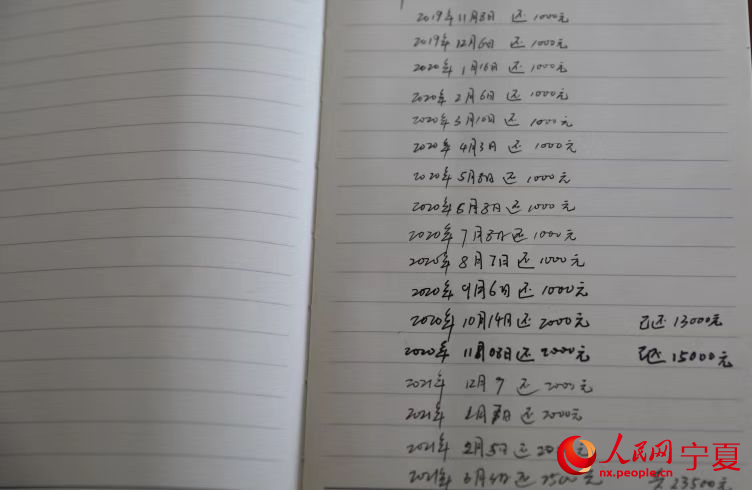 2019年11月8日 还 1000元
2019年12月6日 还 1000元
2020年 1月16日 还 1000元
2020年 2月6日 还 1000元
2020年 3月10日 还 1000元
2020年 4月3日 还 1000元
2020年 5月8日 还 1000元
2020年 6月8日 还 1000元
2020年 7月8日 还 1000元
2020年 8月7日 还 1000元
2020年 9月6日 还 1000元
2020年 10月14日 还 2000元 已还 13000元
2020年 11月03日 还 2000元 已还 15000元
2021年 12月9 还 2000元
2021年 1月 日 还 2000元
2021年 2月5日 还 20
2021年 3月4日 还 2500元 23500元
人民网 宁夏
nx.people.cn